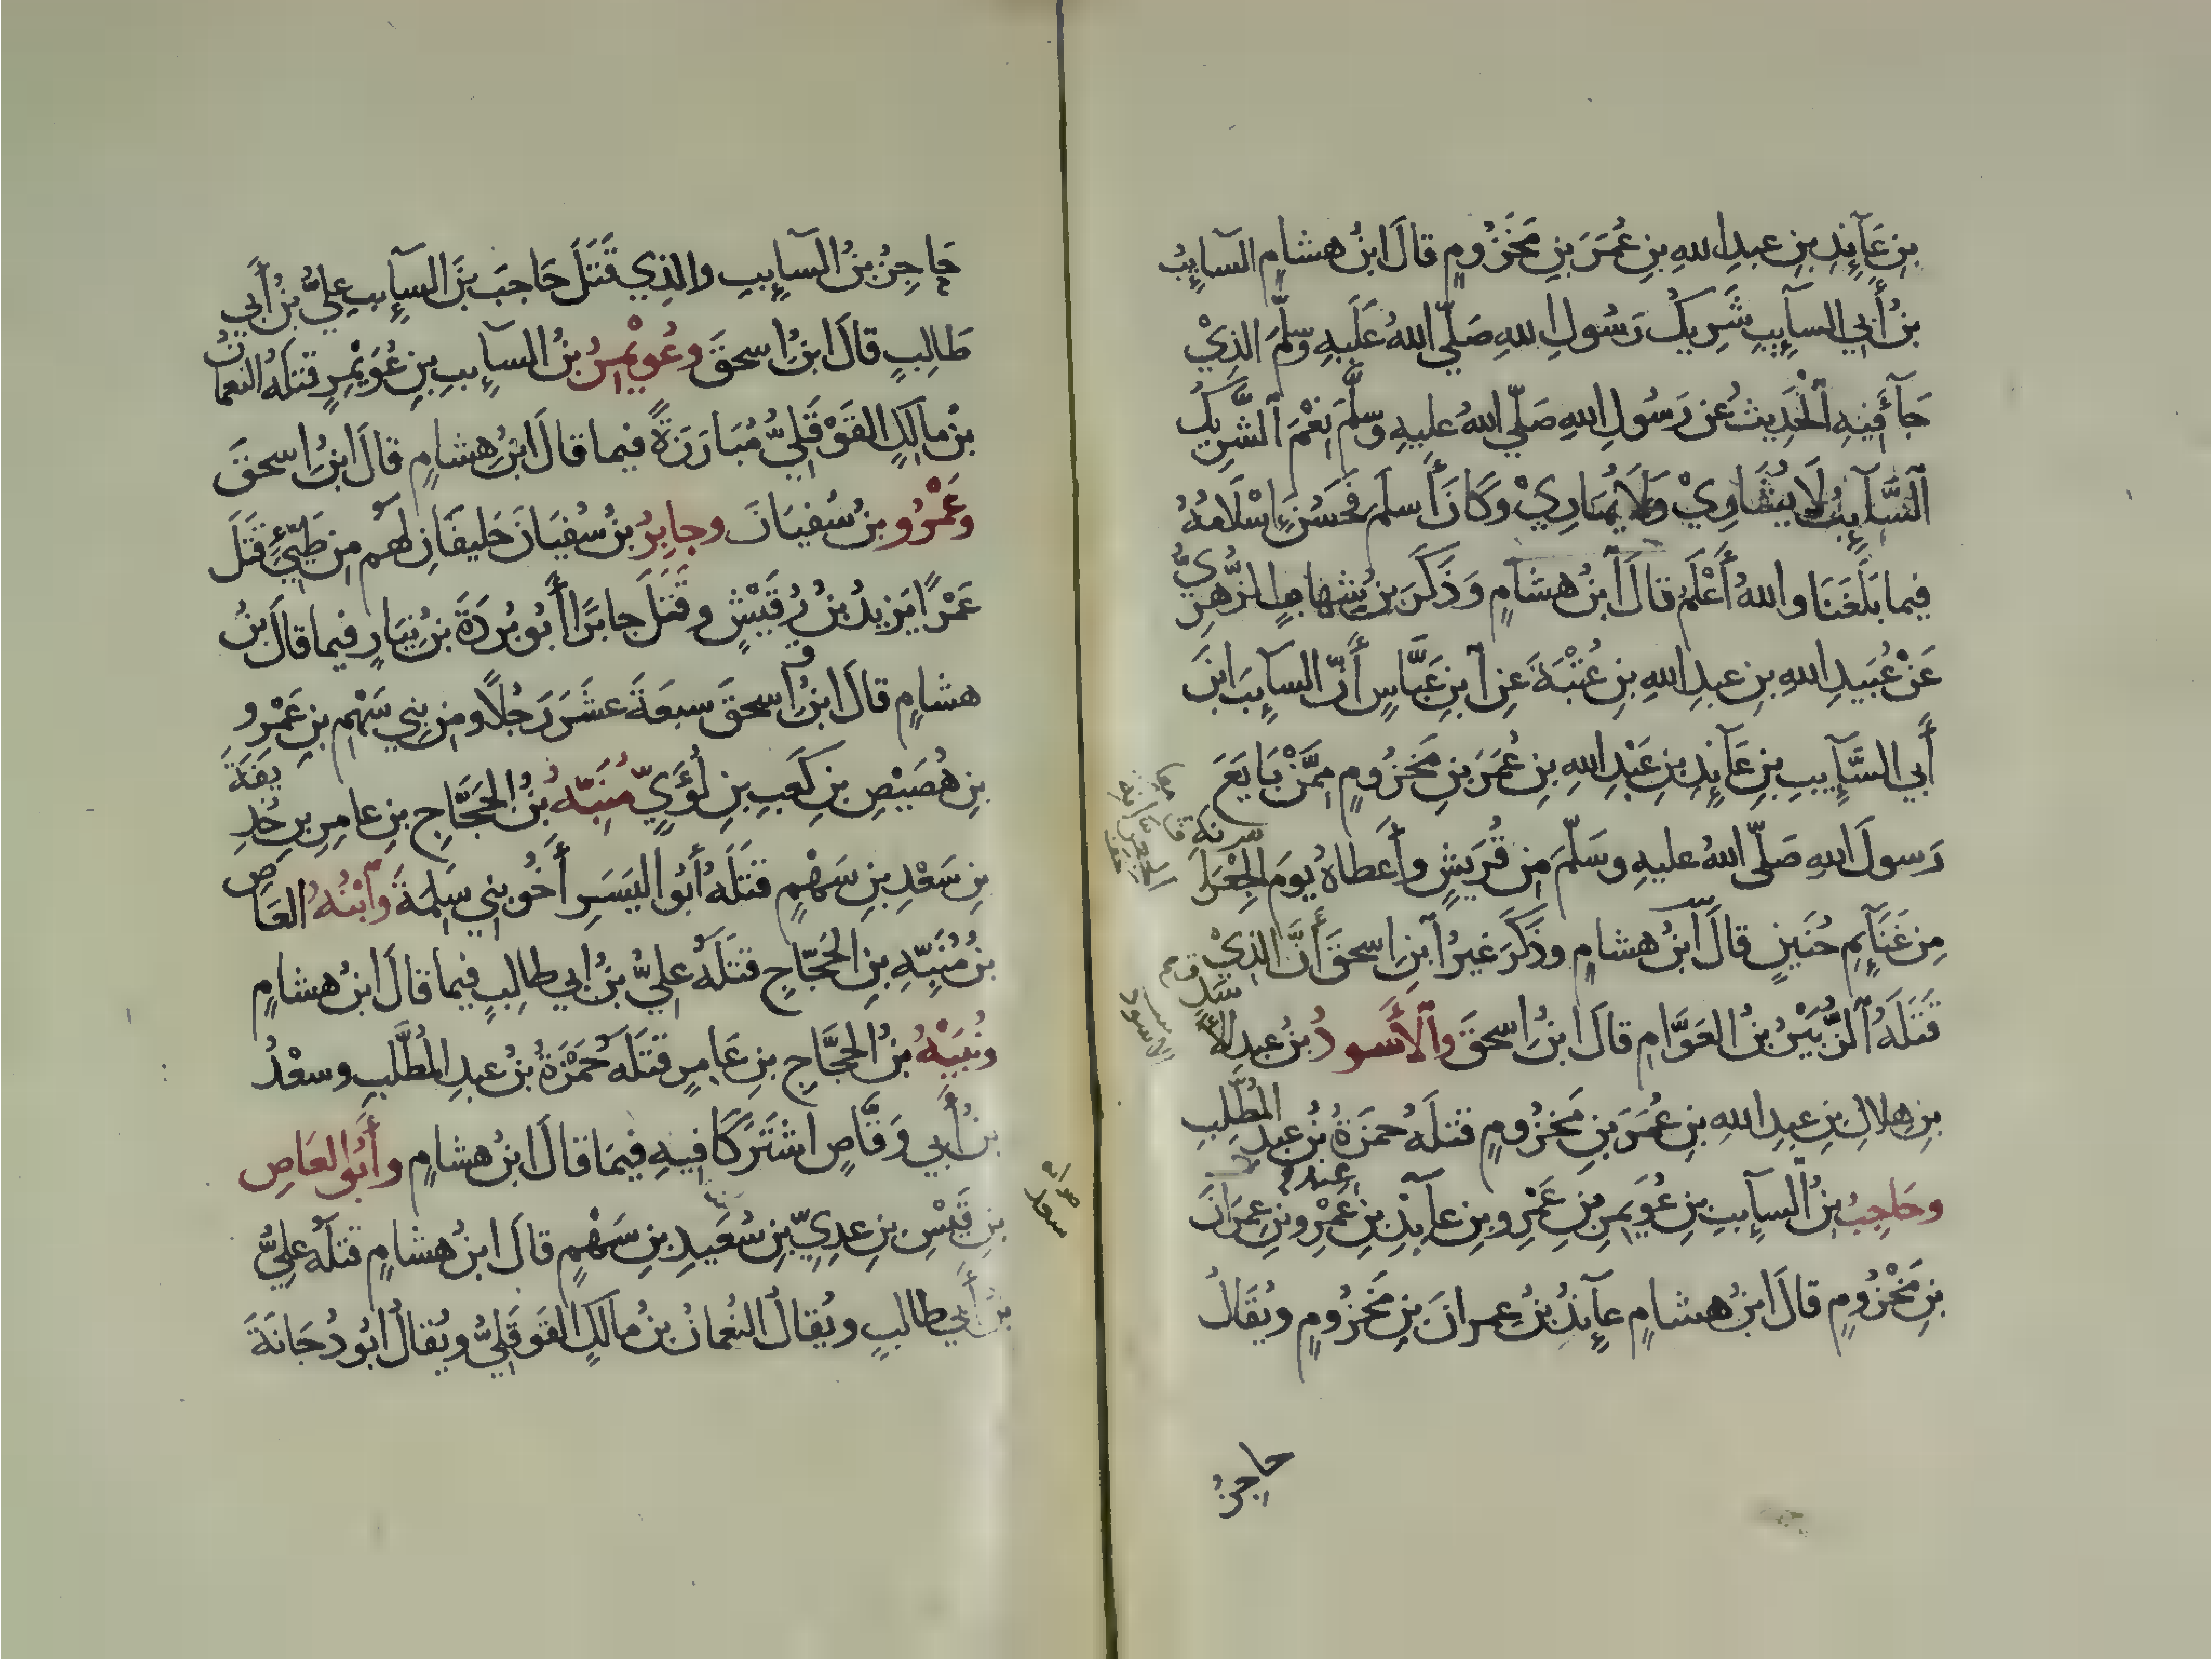 بنِ عَآيِذِ بنِ عبدِ اللهِ بنِ عُمَرَ بنِ مَخْزُومٍ قالَ ابنُ هشامٍ السآيِبُ
بنُ أَبِي السآيِبِ شَرِيكُ رَسُولِ اللهِ صَلّى اللهُ عَلَيهِ وسلّمَ الذِيْ
جَآءَ فِيهِ ٱلْحَدِيثُ عن رَسُولِ اللهِ صَلّى اللهُ عليهِ وسلَّمَ نِعْمَ ٱلشَّرِيكُ
ٱلسَّآيِبُ لَا يُشَاوِيْ وَلَا يُمَارِيْ وَكَانَ أَسلَمَ فَحَسُنَ إِسْلَامُهُ
فيما بَلَغَنَا واللهُ أَعْلَمُ قالَ ٱبنُ هشامٍ وَذَكَرَ بنُ شهابٍ الزُّهرِيُّ
عَنْ عُبَيدِ اللهِ بنِ عبدِ اللهِ بنِ عُتْبَةَ عنِ ٱبنِ عَبَّاسٍ أَنّ السآيِبَ ابنَ
أَبِي السَّآيِبِ بنِ عَآيِذِ بنِ عَبْدِ اللهِ بنِ عُمَرَ بنِ مَخزُومٍ مِمَّنْ بَايَعَ
رَسولَ اللهِ صَلّى اللهُ عليهِ وسَلّمَ مِن قُرَيشٍ وأَعطاهُ يومَ الجِعْرَانَةِ
مِن غَنَآيِمِ حُنَينٍ قالَ ٱبنُ هشامٍ وذَكَرَ غيرُ ٱبنِ إسحقَ أَنَّ الذِيْ
قَتَلَهُ ٱلزُّبَيْرُ بنُ العَوَّامِ قالَ ابنُ إسحقَ وٱلأَسودُ بنُ عبدِ الأَسَدِ
بنِ هِلالِ بنِ عبدِ اللهِ بنِ عُمَرَ بنِ مَخزُومٍ قتلَهُ حمزَةُ بنُ عبدِ المُطَّلِبِ
وحَاجِبُ بنُ السآيِبِ بنِ عُوَيمِرِ بنِ عَمْرِو بنِ عآيِذِ بنِ عَمْرِو بنِ عِمرَانَ
بنِ مَخْزُومٍ قالَ ابنُ هشامٍ عآيِذُ بنُ عِمرانَ بنِ مَخزُومٍ ويُقَالُ
حاجزُ
حَاجِزُ بنُ السآيِبِ والذِي قَتَلَ حَاجبَ بنَ السآيِبِ عليُّ بنُ أَبِي
طَالِبٍ قالَ ابنُ إسحقَ وعُوَيْمِرُ بنُ السآيِبِ بنِ عُوَيْمِرٍ قتلَهُ النعمانُ
بنُ مالِكٍ القَوْقَلِيُّ مُبَارَزَةً فيما قالَ ابنُ هشامٍ قالَ ابنُ إسحقَ
وَعَمْرُو بنُ سُفيَانَ وجابِرُ بنُ سُفيَانَ حَليفَانِ لهم مِن طَيِّئٍ قَتَلَ
عَمْرًا يَزِيدُ بنُ رُقَيْشٍ وقَتَلَ جابرًا أَبُو بُردَةَ بنُ نِيَارٍ فيما قالَ بنُ
هشامٍ قالَ ابنُ إسحقَ سبعَةَ عَشَرَ رَجُلًا ومِن بنِي سَهْمِ بنِ عَمْرِو
بنِ هُصَيْصِ بنِ كَعبِ بنِ لُؤَيٍّ مُنَبِّهُ بنُ الحَجَّاجِ بنِ عامِرِ بنِ حُذَيفَةَ
بنِ سَعْدِ بنِ سَهْمٍ قتَلَهُ أَبُو اليَسَرِ أَخُو بنِي سَلِمَةَ وَٱبْنُهُ العَاصِ
بنُ مُنَبِّهِ بنِ الحَجّاجِ قتَلَهُ عليُّ بنُ ابي طالِبٍ فيما قالَ ابنُ هشامٍ
ونُبَيْهُ بنُ الحَجَّاجِ بنِ عَامِرٍ قتَلَهُ حَمْزَةُ بنُ عبدِ المُطَّلِبِ وسعْدُ
بنُ أَبِي وَقَّاصٍ اشْتَرَكَا فيهِ فيمَا قالَ ابنُ هشامٍ وأَبُو العَاصِ
بنِ قَيْسِ بنِ عدِيِّ بنِ سُعَيدِ بنِ سَهْمٍ قالَ ابنُ هشامٍ قتلَهُ عليُّ
بنُ أَبِي طالبٍ ويُقالُ النُعمانُ بنُ مالكٍ القَوقَلِيُّ ويُقالُ ابُو دُجَانَةَ